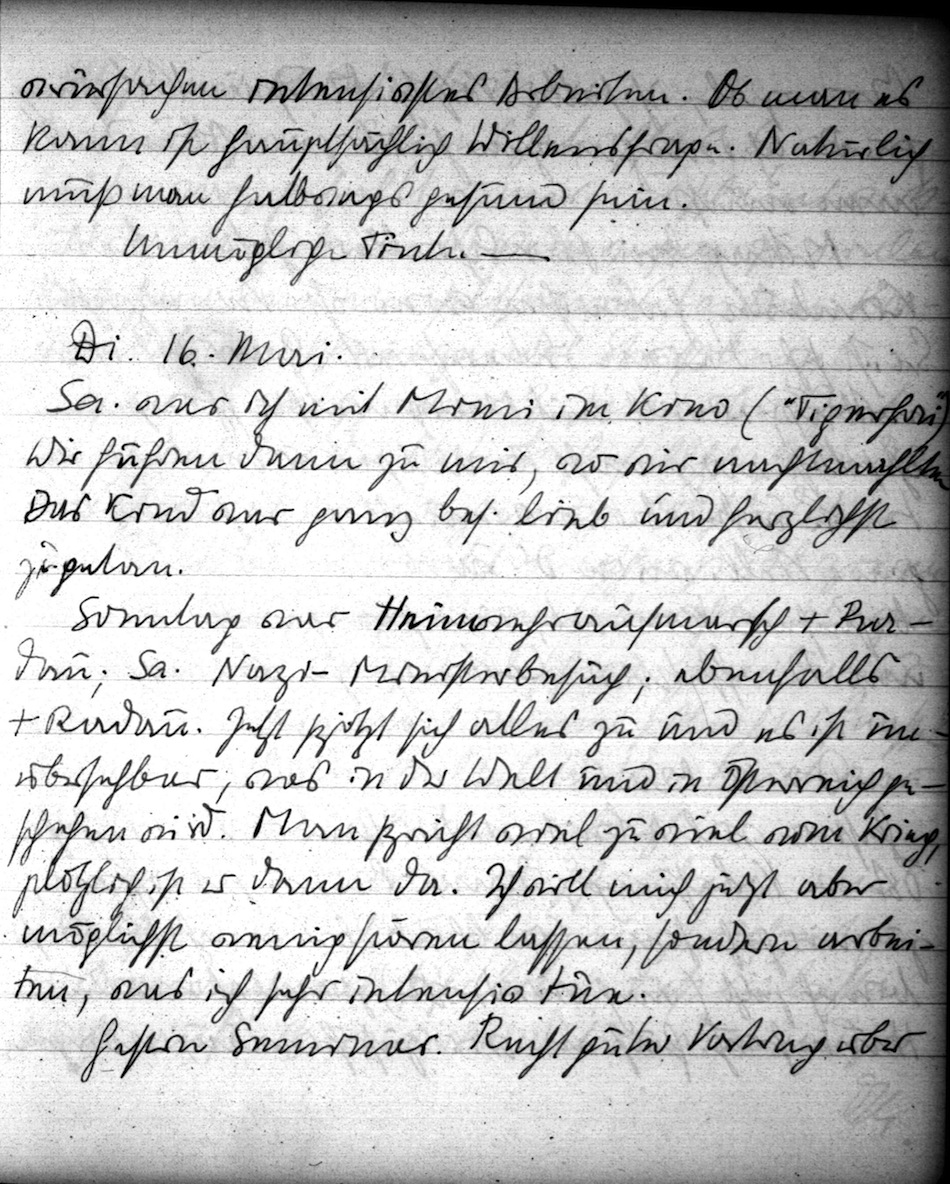 verursachen intensivstes Arbeiten. Ob man es
kann ist hauptsächlich Willensfrage. Natürlich
muß man halbwegs gesund sein.
Unmögliche Tinte. —
Di. 16. Mai.
Sa. war ich mit Mimi im Kino ("Tigerhai")
Wir fuhren dann zu mir, wo wir nachtmahlten
Das Kind war ganz bes. lieb und herzlichst
zugetan.
Sonntag war Heimwehraufmarsch + Ra-
dau; Sa. Nazi-Ministerbesuch; ebenfalls
+ Radau. Jetzt spitzt sich alles zu und es ist un-
übersehbar, was in der Welt und in Österreich ge-
schehen wird. Man spricht viel zu viel vom Krieg,
plötzlich ist er dann da. Ich will mich jetzt aber
möglichst wenig stören lassen, sondern arbei-
ten, was ich sehr intensiv tue.
Gestern Seminar. Recht guter Vortrag über